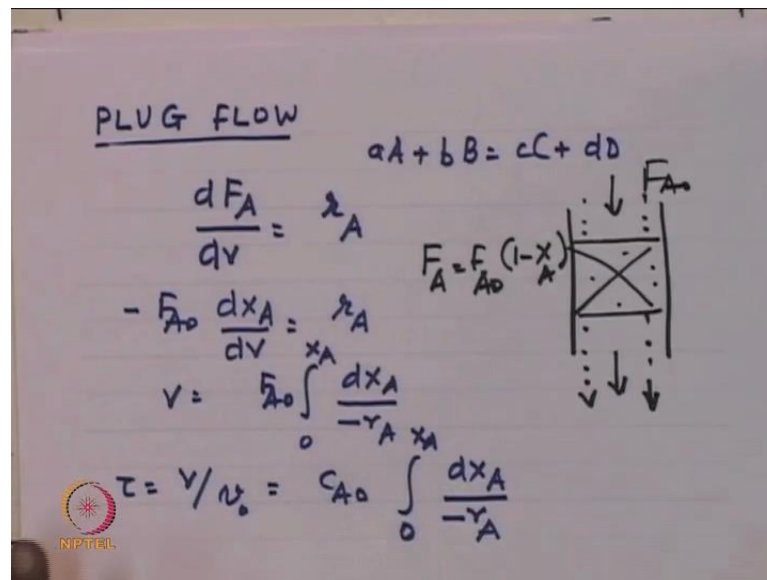 PLUG FLOW
aA + bB = cC + dD
dF_A/dV = r_A
F_A0
F_A = F_A0 (1 - X_A)
- F_A0 dx_A/dV = r_A
V = F_A0 ∫_0^{x_A} dx_A/-r_A
τ = V/v_0 = C_A0 ∫_0^{x_A} dx_A/-r_A
NPTEL